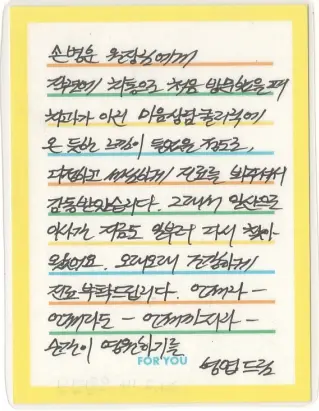 손병운 원장님에게
작년에 치통으로 처음 방문했을 때
치과가 아닌 마음상담클리닉에
온 듯한 느낌이 들었을 정도로,
다정하고 세심하게 진료를 봐주셔서
감동받았습니다. 그래서 일산으로
이사간 지금도 일부러 다시 찾아
왔어요. 오래오래 건강하게
진료 부탁드립니다. 언제라 -
언제라도 - 언제까지라 -
손길이 영원하기를
FOR YOU
드림